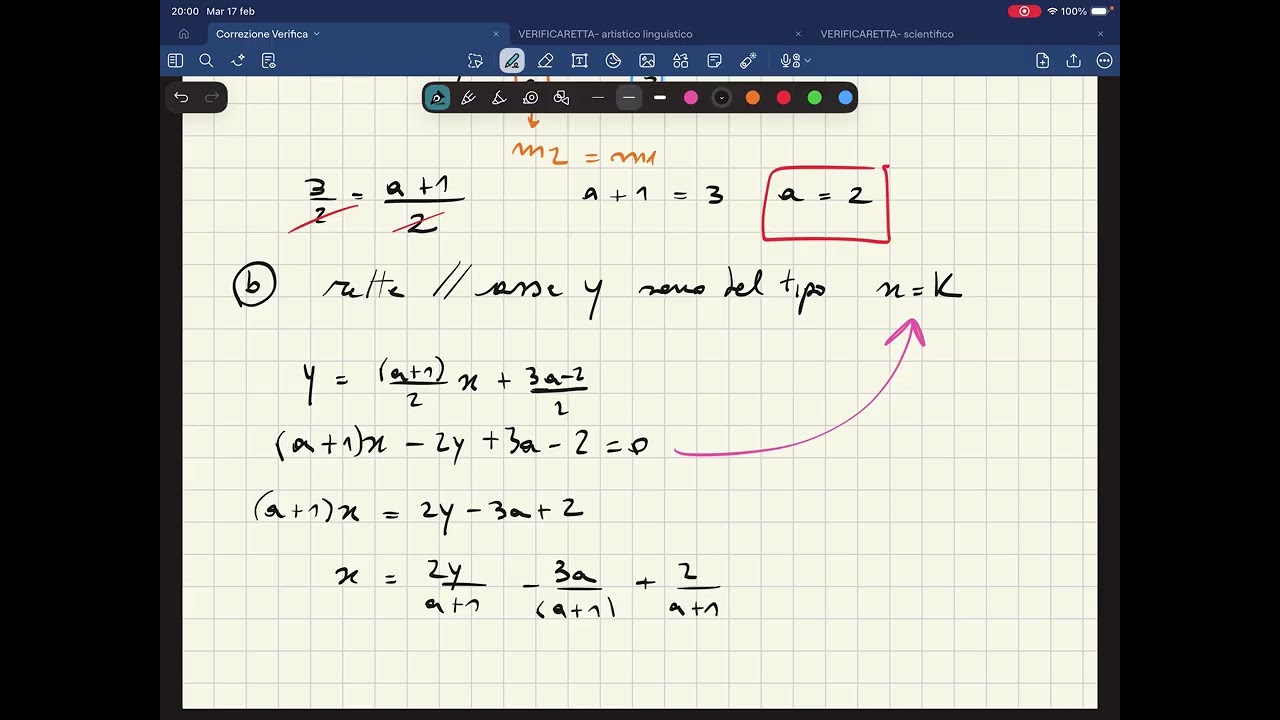 20:00 Mar 17 feb 100%
Correzione Verifica VERIFICARETTA- artistico linguistico VERIFICARETTA- scientifico
m2 = m1
3/2 = a+1/2 a+1 = 3 a = 2
b rette // asse y sono del tipo x = K
y = (a+1)/2 x + 3a-2/2
(a+1)x - 2y + 3a - 2 = 0
(a+1)x = 2y - 3a + 2
x = 2y/a+1 - 3a/(a+1) + 2/a+1